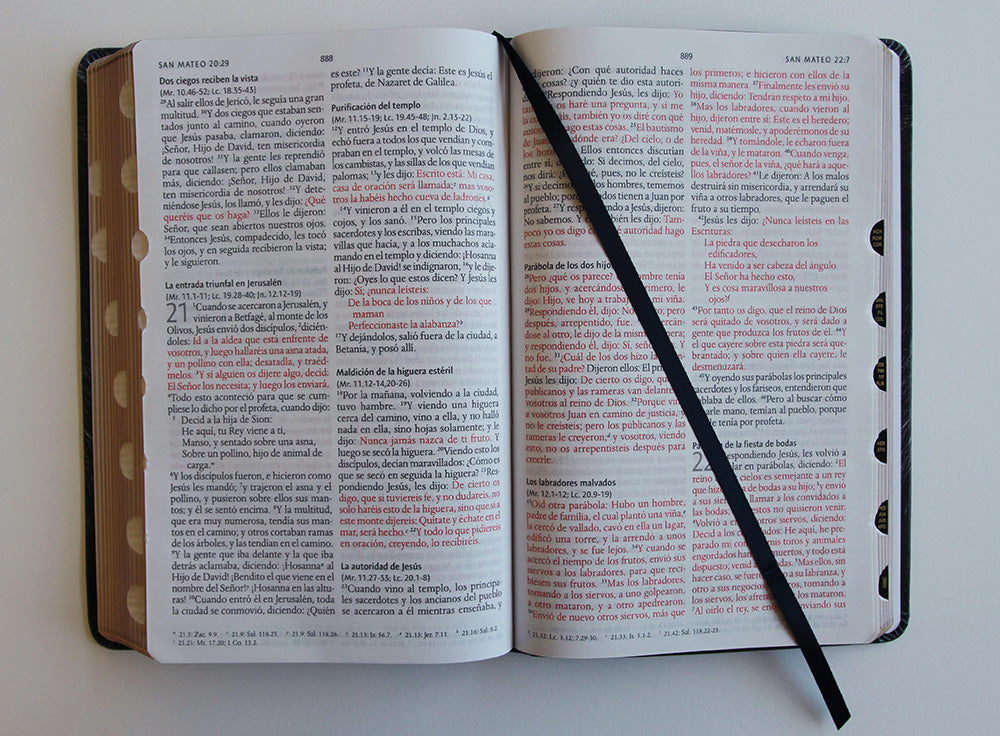 SAN MATEO 20:29
888
Dos ciegos reciben la vista
(Mr. 10.46-52; Lc. 18.35-43)
²⁹Al salir ellos de Jericó, le seguía una gran
multitud. ³⁰Y dos ciegos que estaban sen-
tados junto al camino, cuando oyeron
que Jesús pasaba, clamaron, diciendo:
¡Señor, Hijo de David, ten misericordia
de nosotros! ³¹Y la gente les reprendió
para que callasen; pero ellos clamaban
más, diciendo: ¡Señor, Hijo de David,
ten misericordia de nosotros! ³²Y dete-
niéndose Jesús, los llamó, y les dijo: ¿Qué
queréis que os haga? ³³Ellos le dijeron:
Señor, que sean abiertos nuestros ojos.
³⁴Entonces Jesús, compadecido, les tocó
los ojos, y en seguida recibieron la vista;
y le siguieron.
La entrada triunfal en Jerusalén
(Mr. 11.1-11; Lc. 19.28-40; Jn. 12.12-19)
21 ¹Cuando se acercaron a Jerusalén, y
vinieron a Betfagé, al monte de los
Olivos, Jesús envió dos discípulos, ²dicién-
doles: Id a la aldea que está enfrente de
vosotros, y luego hallaréis una asna atada,
y un pollino con ella; desatadla, y traéd-
melos. ³Y si alguien os dijere algo, decid:
El Señor los necesita; y luego los enviará.
⁴Todo esto aconteció para que se cum-
pliese lo dicho por el profeta, cuando dijo:
⁵ Decid a la hija de Sion:
He aquí, tu Rey viene a ti,
Manso, y sentado sobre una asna,
Sobre un pollino, hijo de animal de
carga.
⁶Y los discípulos fueron, e hicieron como
Jesús les mandó; ⁷y trajeron el asna y el
pollino, y pusieron sobre ellos sus man-
tos; y él se sentó encima. ⁸Y la multitud,
que era muy numerosa, tendía sus man-
tos en el camino; y otros cortaban ramas
de los árboles, y las tendían en el camino.
⁹Y la gente que iba delante y la que iba
detrás aclamaba, diciendo: ¡Hosanna al
Hijo de David! ¡Bendito el que viene en el
nombre del Señor! ¡Hosanna en las altu-
ras! ¹⁰Cuando entró él en Jerusalén, toda
la ciudad se conmovió, diciendo: ¿Quién
es este? ¹¹Y la gente decía: Este es Jesús el
profeta, de Nazaret de Galilea.
Purificación del templo
(Mr. 11.15-19; Lc. 19.45-48; Jn. 2.13-22)
¹²Y entró Jesús en el templo de Dios, y
echó fuera a todos los que vendían y com-
praban en el templo, y volcó las mesas de
los cambistas, y las sillas de los que vendían
palomas; ¹³y les dijo: Escrito está: Mi casa,
casa de oración será llamada; mas voso-
tros la habéis hecho cueva de ladrones.
¹⁴Y vinieron a él en el templo ciegos y
cojos, y los sanó. ¹⁵Pero los principales
sacerdotes y los escribas, viendo las mara-
villas que hacía, y a los muchachos acla-
mando en el templo y diciendo: ¡Hosanna
al Hijo de David! se indignaron, ¹⁶y le dije-
ron: ¿Oyes lo que estos dicen? Y Jesús les
dijo: Sí; ¿nunca leísteis:
De la boca de los niños y de los que
maman
Perfeccionaste la alabanza?
¹⁷Y dejándolos, salió fuera de la ciudad, a
Betania, y posó allí.
Maldición de la higuera estéril
(Mr. 11.12-14,20-26)
¹⁸Por la mañana, volviendo a la ciudad,
tuvo hambre. ¹⁹Y viendo una higuera
cerca del camino, vino a ella, y no halló
nada en ella, sino hojas solamente; y le
dijo: Nunca jamás nazca de ti fruto. Y
luego se secó la higuera. ²⁰Viendo esto los
discípulos, decían maravillados: ¿Cómo es
que se secó en seguida la higuera? ²¹Res-
pondiendo Jesús, les dijo: De cierto os
digo, que si tuviereis fe, y no dudareis, no
solo haréis esto de la higuera, sino que si a
este monte dijereis: Quítate y échate en el
mar, será hecho. ²²Y todo lo que pidiereis
en oración, creyendo, lo recibiréis.
La autoridad de Jesús
(Mr. 11.27-33; Lc. 20.1-8)
²³Cuando vino al templo, los principa-
les sacerdotes y los ancianos del pueblo
se acercaron a él mientras enseñaba, y
21.5: Zac. 9.9. 21.9: Sal. 118.25. 21.9: Sal. 118.26. 21.13: Is. 56.7. 21.13: Jer. 7.11. 21.16: Sal. 8.2.
21.21: Mt. 17.20; 1 Co. 13.2.
889
SAN MATEO 22:7
dijeron: ¿Con qué autoridad haces
cosas? ¿y quién te dio esta autori-
Respondiendo Jesús, les dijo: Yo
os haré una pregunta, y si me
táis, también yo os diré con qué
ago estas cosas. ²⁵El bautismo
de Juan, dónde era? ¿Del cielo, o de
los hom Ellos entonces discutían
entre sí, do: Si decimos, del cielo,
nos dirá: ¿P qué, pues, no le creísteis?
²⁶Y si decimo los hombres, tememos
al pueblo; por dos tienen a Juan por
profeta. ²⁷Y resp o a Jesús, dijeron:
No sabemos. Y én les dijo: Tam-
poco yo os digo c autoridad hago
estas cosas.
Parábola de los dos hijos
²⁸Pero ¿qué os parece? mbre tenía
dos hijos, y acercándose rimero, le
dijo: Hijo, ve hoy a trabaj mi viña.
²⁹Respondiendo él, dijo: No pero
después, arrepentido, fue. ercán-
dose al otro, le dijo de la misma era;
y respondiendo él, dijo: Sí, señor, Y
no fue. ³¹¿Cuál de los dos hizo la n-
tad de su padre? Dijeron ellos: El pri
Jesús les dijo: De cierto os digo, que
publicanos y las rameras van delante
vosotros al reino de Dios. ³²Porque vin
a vosotros Juan en camino de justicia, y
no le creísteis; pero los publicanos y las
rameras le creyeron; y vosotros, viendo
esto, no os arrepentisteis después para
creerle.
Los labradores malvados
(Mr. 12.1-12; Lc. 20.9-19)
³³Oíd otra parábola: Hubo un hombre,
padre de familia, el cual plantó una viña,
la cercó de vallado, cavó en ella un lagar,
edificó una torre, y la arrendó a unos
labradores, y se fue lejos. ³⁴Y cuando se
acercó el tiempo de los frutos, envió sus
siervos a los labradores, para que reci-
biesen sus frutos. ³⁵Mas los labradores,
tomando a los siervos, a uno golpearon,
a otro mataron, y a otro apedrearon.
³⁶Envió de nuevo otros siervos, más que
los primeros; e hicieron con ellos de la
misma manera. ³⁷Finalmente les envió su
hijo, diciendo: Tendrán respeto a mi hijo.
³⁸Mas los labradores, cuando vieron al
hijo, dijeron entre sí: Este es el heredero;
venid, matémosle, y apoderémonos de su
heredad. ³⁹Y tomándole, le echaron fuera
de la viña, y le mataron. ⁴⁰Cuando venga,
pues, el señor de la viña, ¿qué hará a aque-
llos labradores? ⁴¹Le dijeron: A los malos
destruirá sin misericordia, y arrendará su
viña a otros labradores, que le paguen el
fruto a su tiempo.
⁴²Jesús les dijo: ¿Nunca leísteis en las
Escrituras:
La piedra que desecharon los
edificadores,
Ha venido a ser cabeza del ángulo.
El Señor ha hecho esto,
Y es cosa maravillosa a nuestros
ojos?
⁴³Por tanto os digo, que el reino de Dios
será quitado de vosotros, y será dado a
gente que produzca los frutos de él. ⁴⁴Y
el que cayere sobre esta piedra será que-
brantado; y sobre quien ella cayere, le
desmenuzará.
⁴⁵Y oyendo sus parábolas los principales
sacerdotes y los fariseos, entendieron que
hablaba de ellos. ⁴⁶Pero al buscar cómo
arle mano, temían al pueblo, porque
te tenía por profeta.
Pa de la fiesta de bodas
22 espondiendo Jesús, les volvió a
lar en parábolas, diciendo: ²El
reino cielos es semejante a un rey
que hiz de bodas a su hijo; ³y envió
a sus si llamar a los convidados a
las bodas; stos no quisieron venir.
⁴Volvió a e otros siervos, diciendo:
Decid a los c dos: He aquí, he pre-
parado mi com mis toros y animales
engordados han muertos, y todo está
dispuesto; venid a das. ⁵Mas ellos, sin
hacer caso, se fuero o a su labranza, y
otro a sus negocios; os, tomando a
los siervos, los afrentar los mataron.
⁷Al oírlo el rey, se enoj nviando sus
21.32: Lc. 3.12; 7.29-30. 21.33: Is. 5.1-2. 21.42: Sal. 118.22-23.